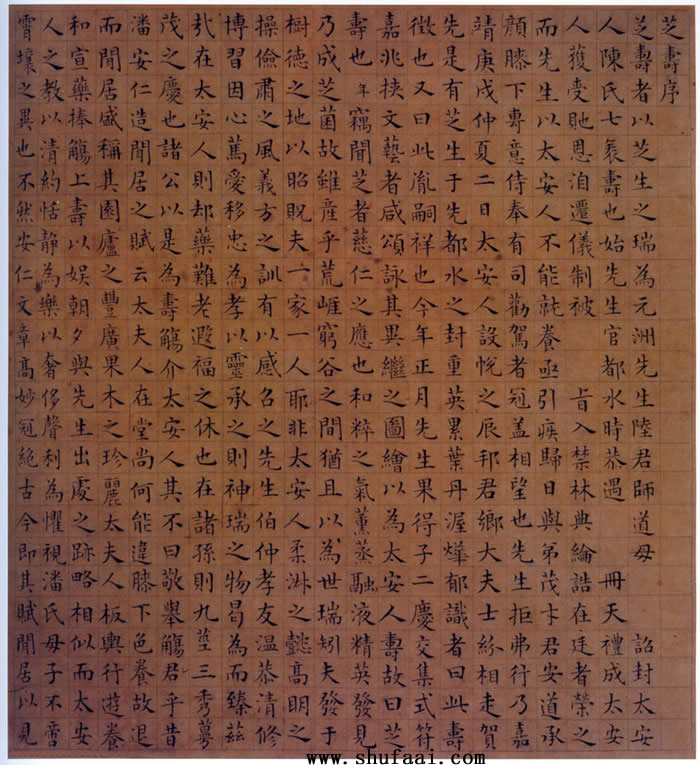 芝壽序
芝壽者以芝生之瑞為元洲先生陸君師道母 詔封太安
人陳氏七袠壽也始先生官都水時恭遇 冊天禮成太安
人獲受貤恩洎遷儀制被 旨入禁林典綸誥在廷者榮之
而先生以太安人不能就養亟引疾歸日與弟茂卞君安道承
顏膝下專意侍奉有司勸駕者冠盖相望也先生拒弗行乃嘉
靖庚戌仲夏二日太安人設帨之辰邦君鄉大夫士紛相走賀
先是有芝生于先都水之封重英累葉丹渥燁郁識者曰此壽
徵也又曰此胤嗣祥也今年正月先生果得子二慶交集式符
嘉兆挾文藝者咸頌詠其異繼之圖繪以為太安人壽故曰芝
壽也年竊聞芝者慈仁之應也和粹之氣薰蒸融液精英發見
乃成芝菌故雖産乎荒崕窮谷之間猶且以為世瑞矧夫發于
樹德之地以昭貺夫一家一人耶非太安人柔淋之懿高明之
操儉肅之風義方之訓有以感名之先生伯仲孝友温恭清修
博習因心篤愛移忠為孝以靈承之則神瑞之物曷為而臻茲
㢤在太安人則却藥難老遐福之休也在諸孫則九莖三秀蕚
茂之慶也諸公以是為壽觴介太安人其不曰敬舉觴君乎昔
潘安仁造閒居之賦云太夫人在堂尚何能違膝下色養故退
而閒居盛稱其園廬之豐廣果木之珍麗太夫人板輿行遊養
和宣藥捧觴上壽以娱朝夕與先生出處之跡略相似而太安
人之教以清約恬靜為樂以奢侈聲利為懼視潘氏母子不啻
霄壤之異也不然安仁文章髙妙冠絕古今即其賦閒居以見
www.shufaai.com